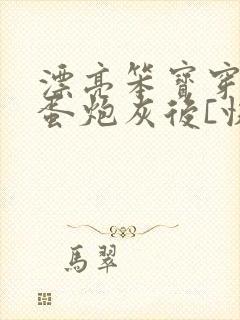 漂亮笨寶穿
蛋炮灰後[快
馬翠